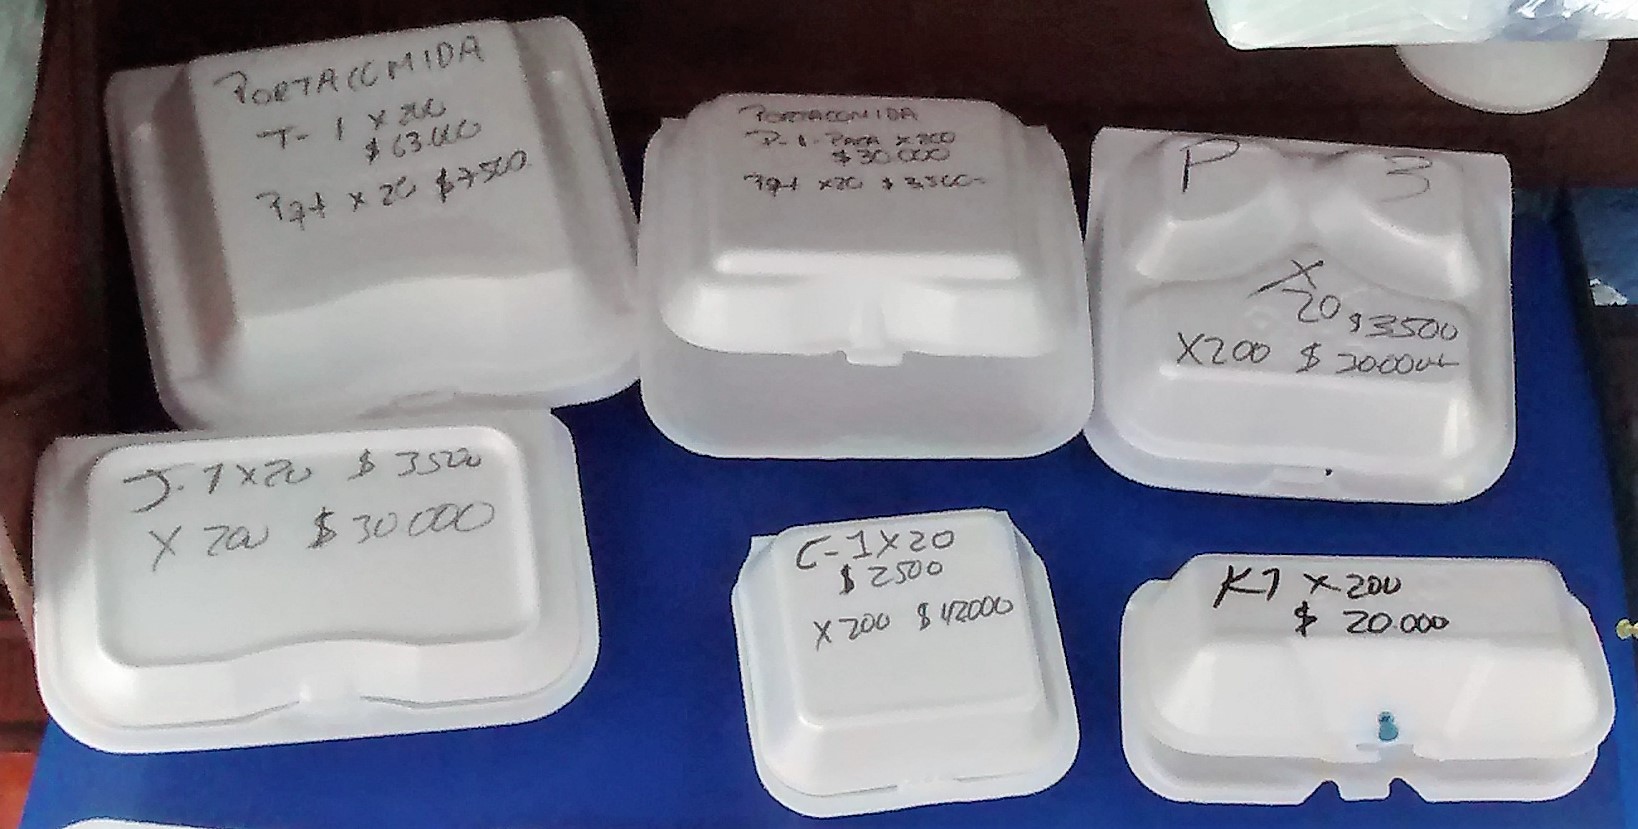 PORTACOMIDA
T-1 X 200
$63.000
Pqt X 20 $7500
PORTACOMIDA
P-1- X 200
$30.000
Pqt X20 $3500-
P 3
X
20 $3500
X200 $
J-1 X20 $3500
X 200 $30000
C-1 X20
$2500
X 200
K1 X 200
$ 20.000